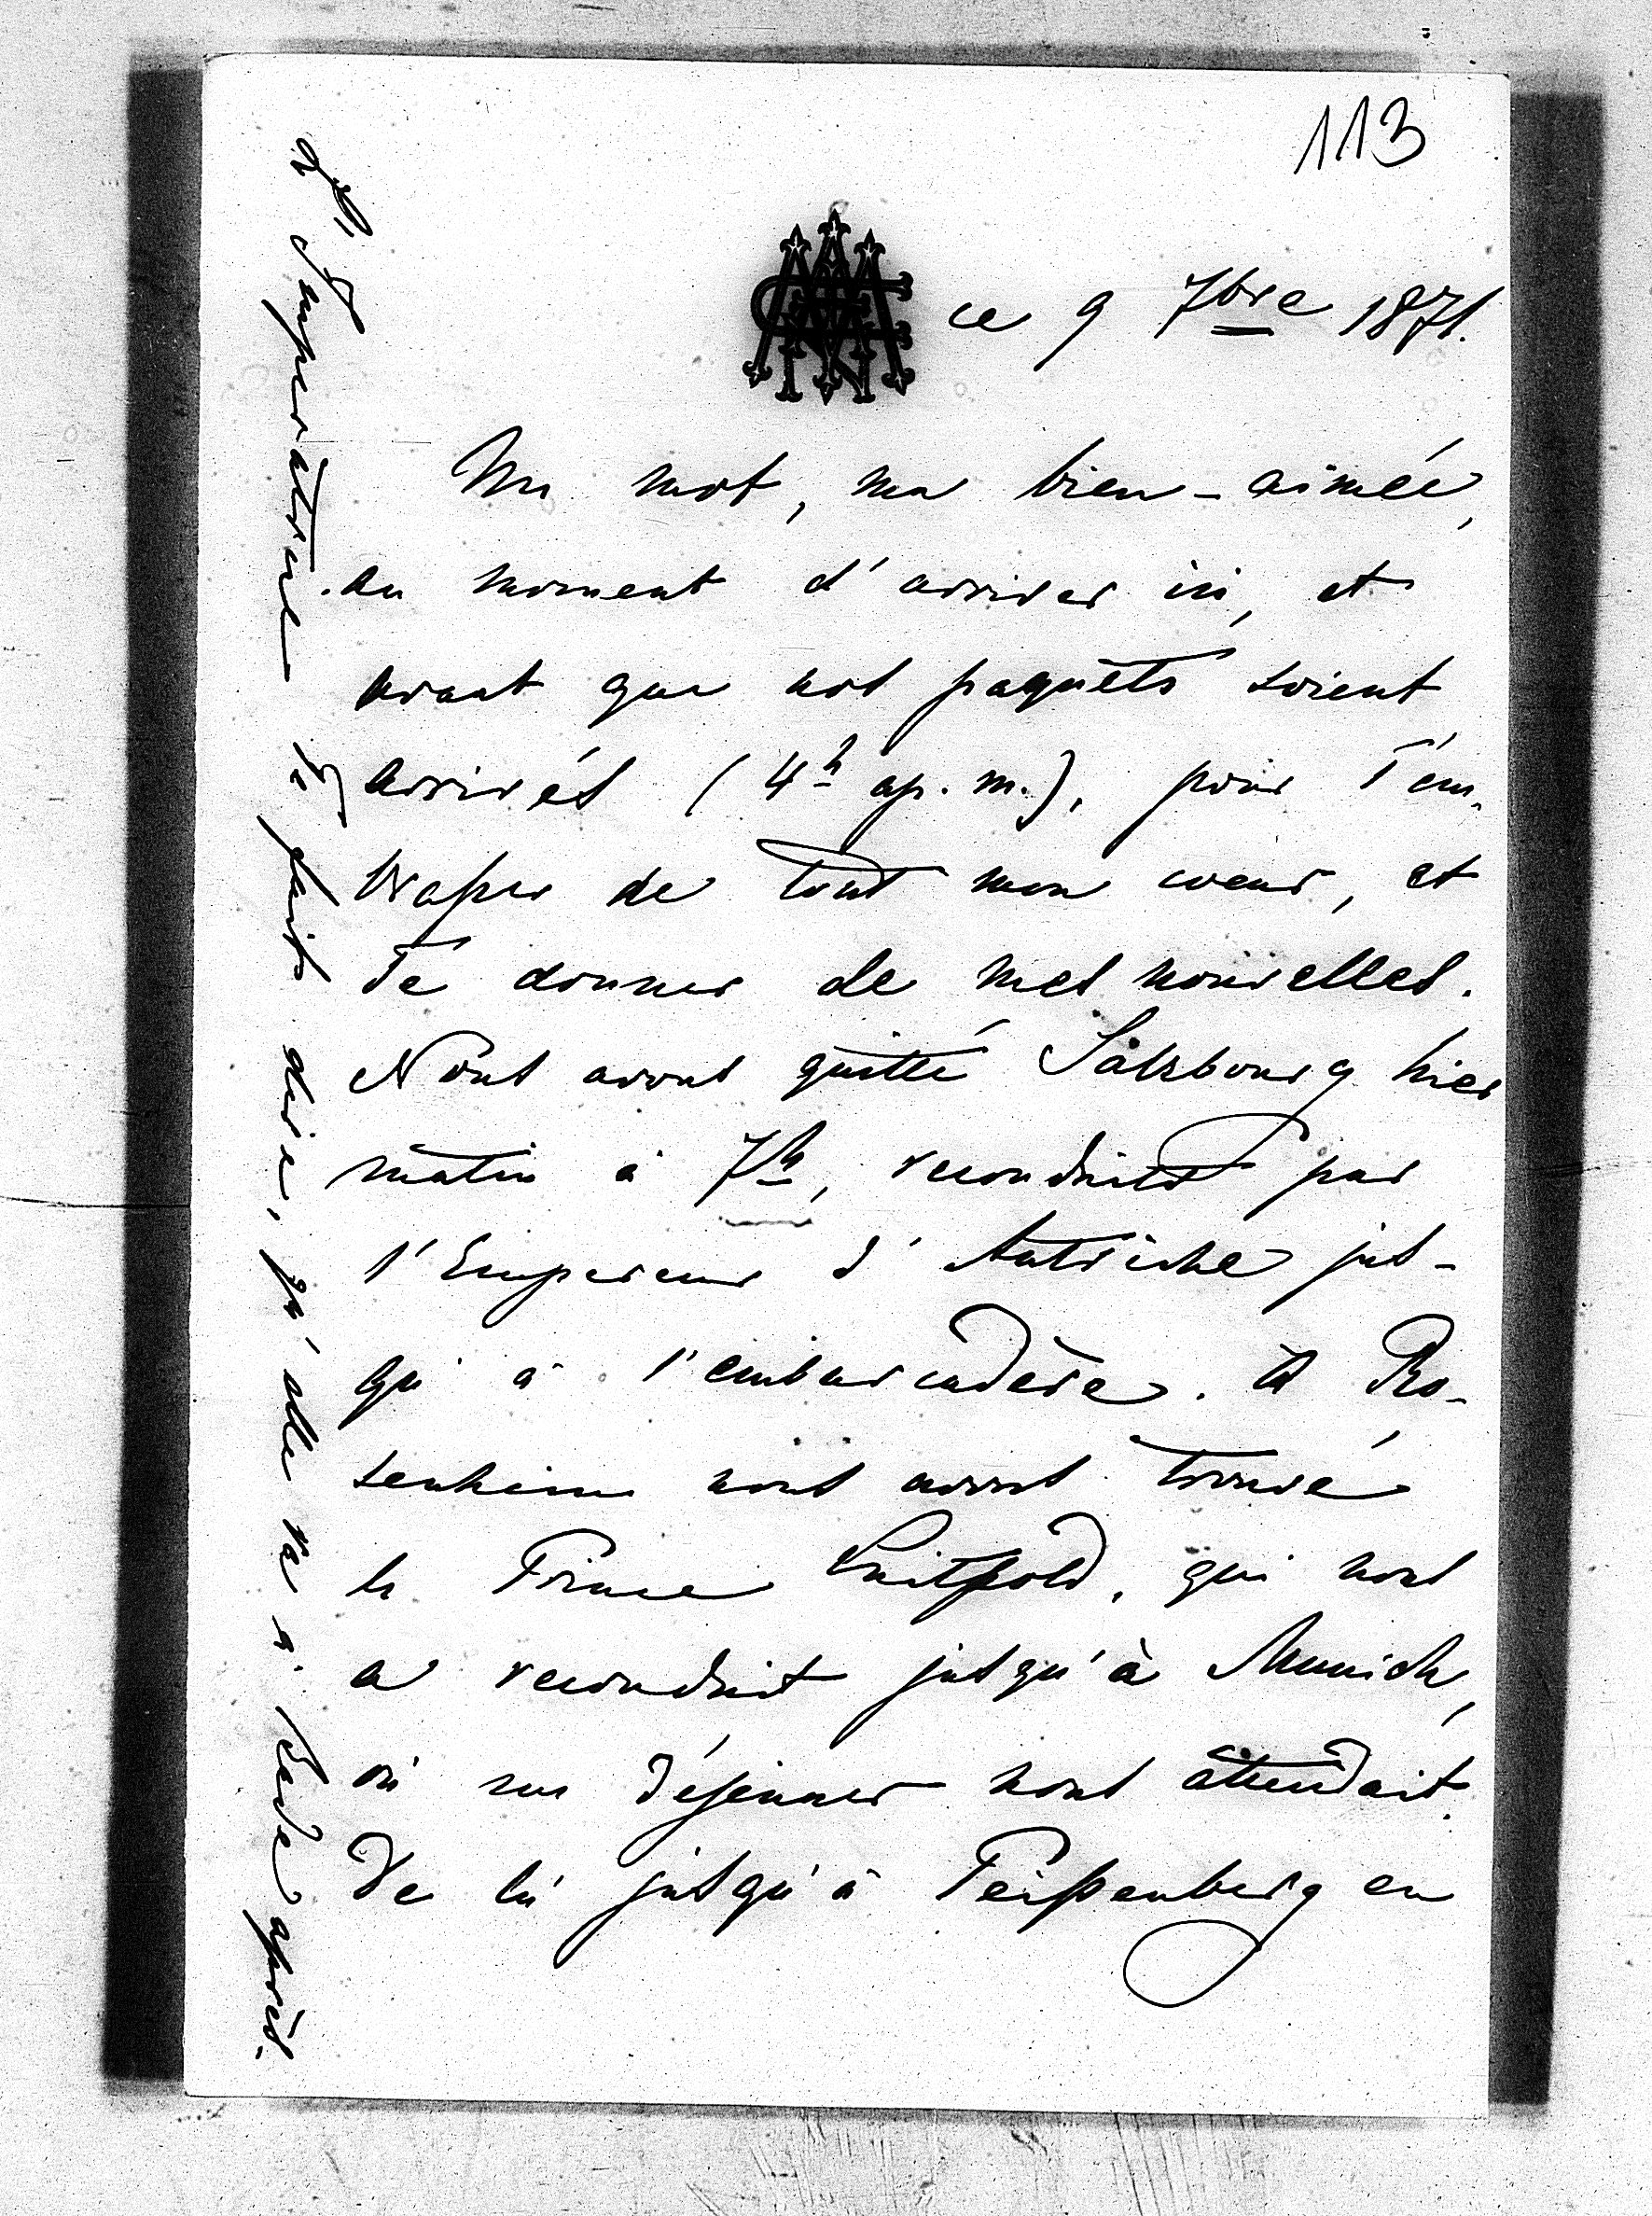 113
ce 9 7bre 1871.
Un mot, ma bien-aimée,
au moment d'arriver ici, et
avant que nos paquets soient
arrivés (4h ap. m.), pour t'em-
brasser de tout mon coeur, et
te donner de mes nouvelles.
Nous avons quitté Salzbourg hier
matin à 7h, reconduits par
l'Empereur d'Autriche jus-
qu'à l'embarcadère. A Ro-
senheim nous avons trouvé
le Prince Luitpold, qui nous
a reconduit jusqu'à Munich,
où un déjeuner nous attendait.
De là jusqu'à Peissenberg en
L'Impératrice fait dire, qu'elle va à Bade après.